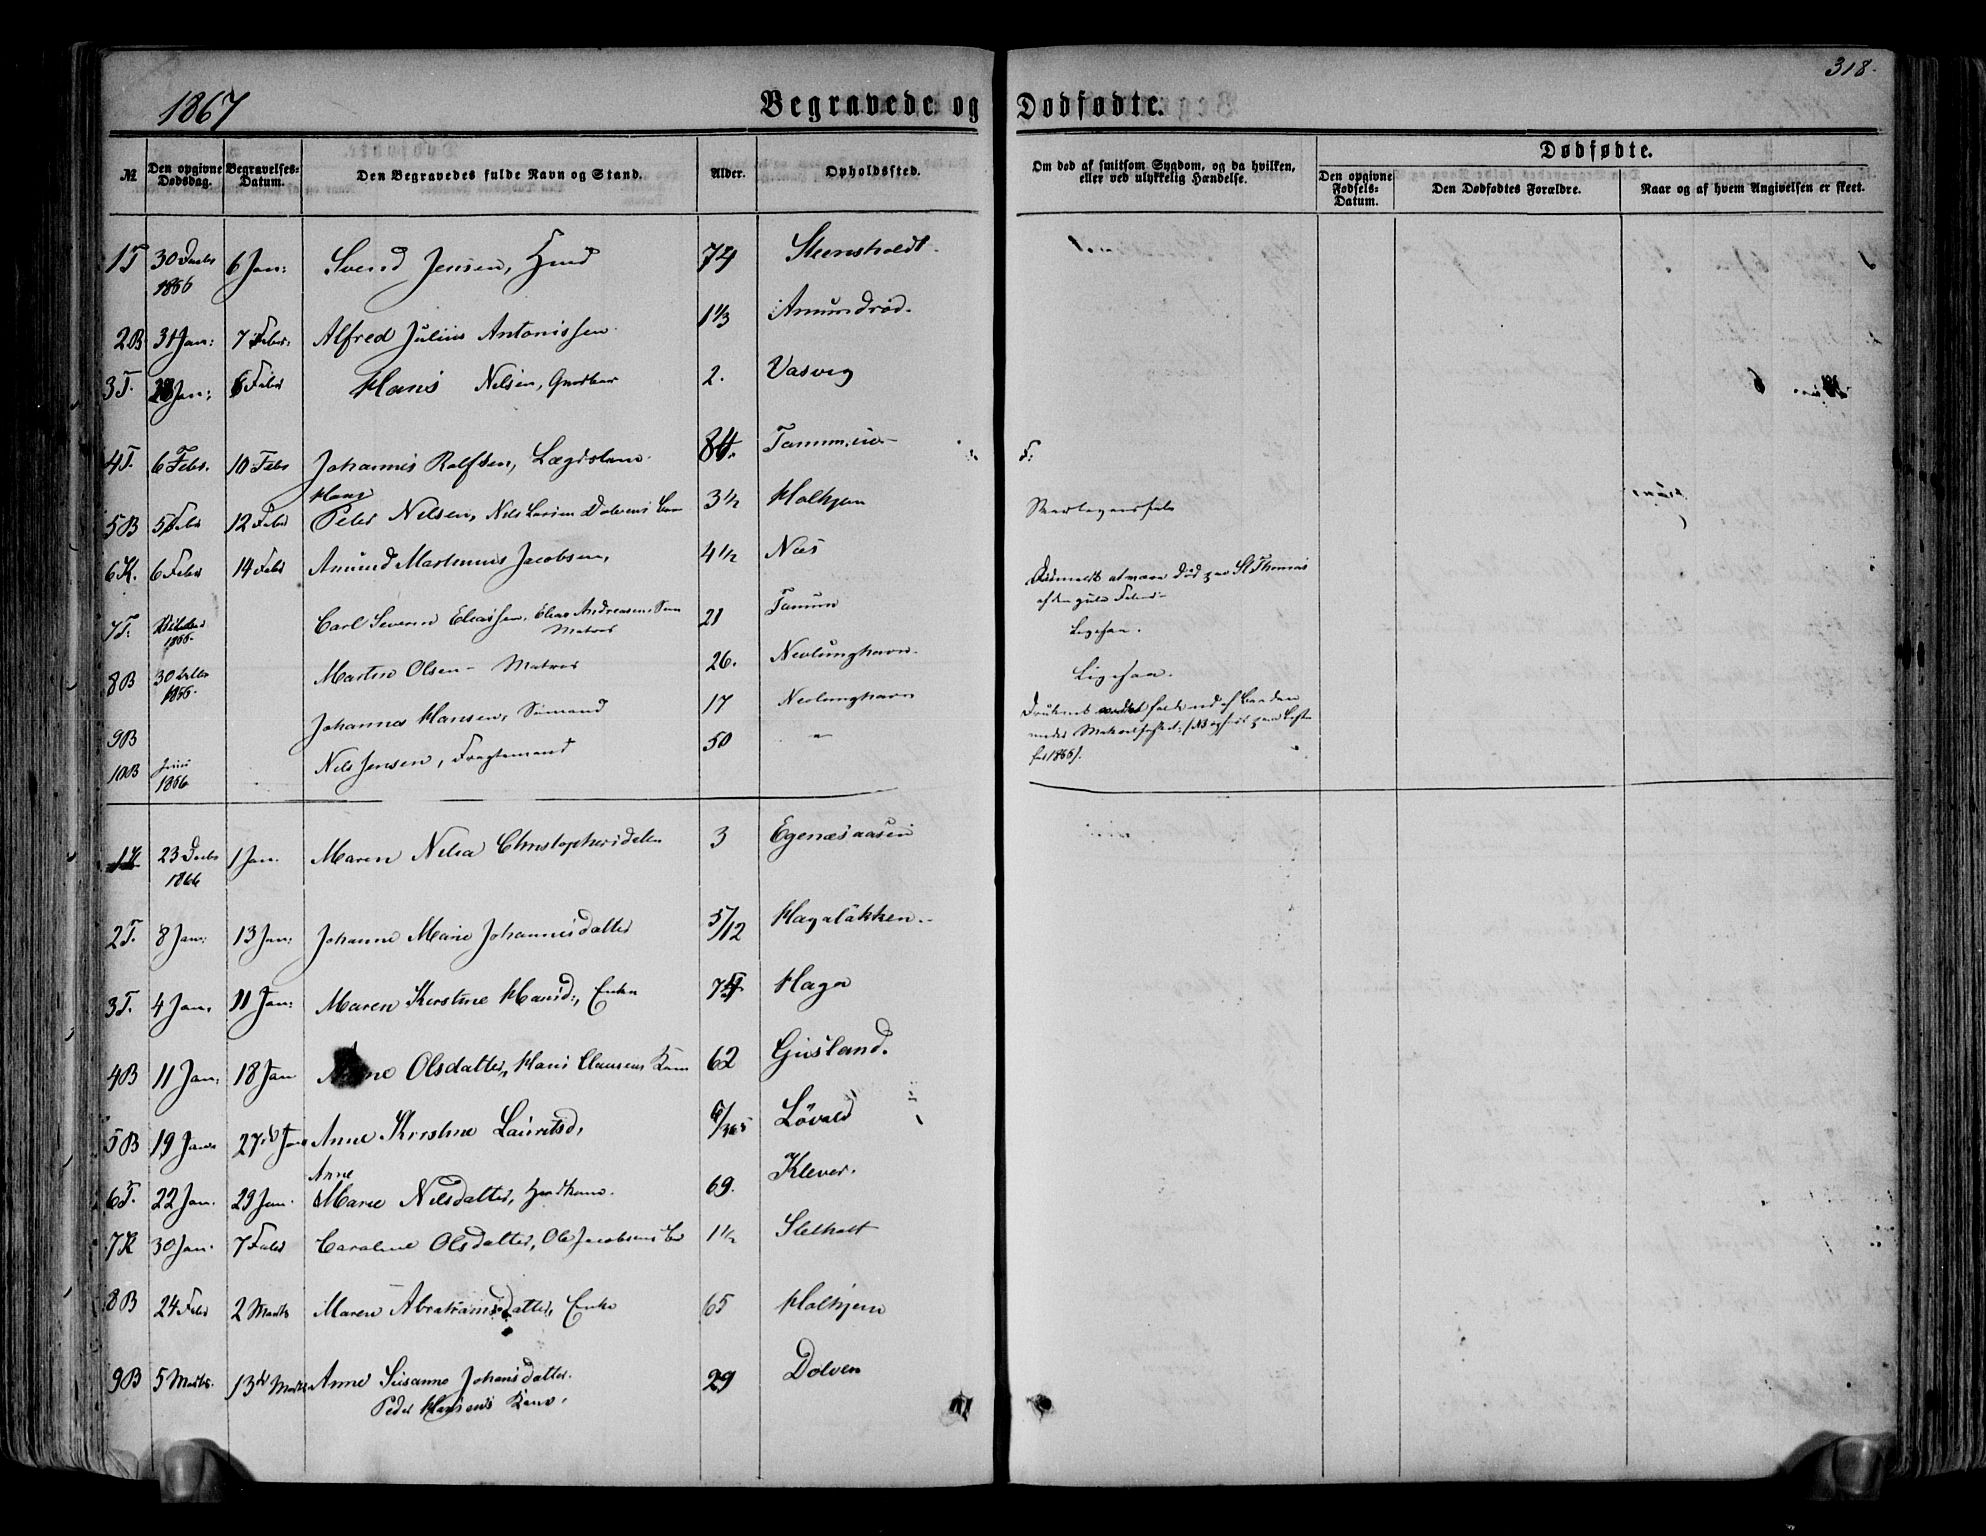 318.
1867
Begravede og Dødfødte.
№
Den opgivne Dødsdag.
Begravelses-Datum.
Den Begravedes fulde Navn og Stand.
Alder.
Opholdssted.
Om død af smitsom Sygdom, og da hvilken, eller ved ulykkelig Hændelse.
Dødfødte.
Den opgivne Fødsels-Datum.
Den Dødfødtes Forældre.
Naar og af hvem Angivelsen er skeet.
1T 30 Decbr 1866 6 Jan: Svend Jensen, Hmd 74 Steensholdt.
2B 31 Jan: 7 Febr: Alfred Julius Antonissen 1 1/3 Amundrød.
3T. Jan: 6 Febr Hans Nilsen, 2. Vasvig
4T. 6 Febr. 10 Febr Johannes Rolfsen, Lægdslem 84. Tanum F:
Hans
5B 5 Febr 12 Febr Peder Nilsen, Nils Larsen Dolvens 3 1/2 Holhjem
6K. 6 Febr 14 Febr Amund Martinius Jacobsen, 4 1/2 Næs
7T: 1866. Carl Severin Eliassen, Elias Andreasens Søn Matros 21 Tanum Anmeldt at være død paa St Thomas af den gule Feber
8B 30 1866. Martin Olsen - Matros 26. Nevlunghavn. Ligesaa.
9B Johannes Hansen, Sømand 17 Nevlunghavn Ligesaa.
10B Juni 1866 Nils Jensen, Fragtemand 50 "
1K 23 Decbr 1866 1 Jan. Maren Nilea Christophersdatter 3 Egenæsaasen
2T. 8 Jan: 13 Jan: Johanne Marie Johannesdatter 5/12 Hagaløkken
3T. 4 Jan. 11 Jan: Maren Kirstine Hansd:, Enke 74 Haga
4B 11 Jan: 18 Jan Olsdatter, Hans Clausens Kone 62 Gusland.
5B 19 Jan. 27de Jan Anne Kirstine Lauritsd, 6/365 Løvald
Anne
6T. 22 Jan. 29 Jan. Marie Nilsdatter, 69. Klever.
7K 30 Jan. 7 Febr Caroline Olsdatter, Ole Jacobsens 1 1/2 Sletholt
8B 24 Febr 2 Marts Maren Abrahamsdatter, Enke 65 Holhjem
9B 5 Marts. 13de Marts Anne Susanne Johansdatter. 29 Dolven
Peder Hansens Kone,